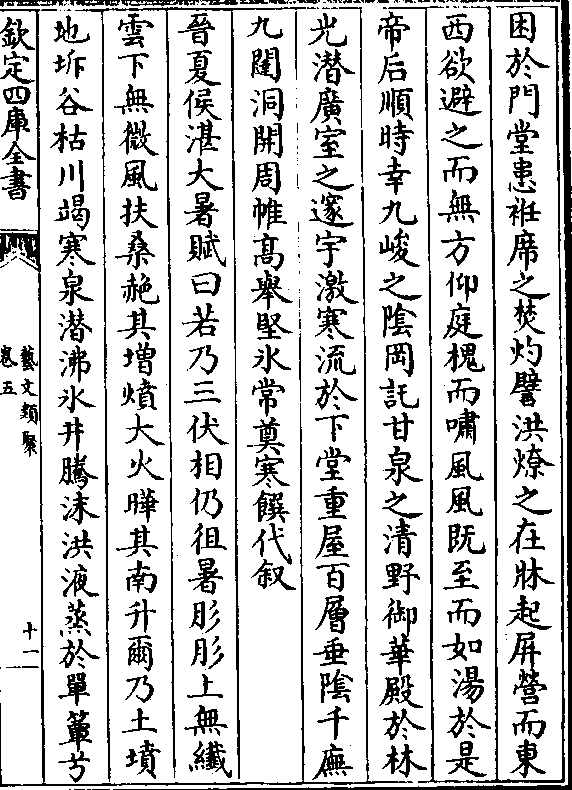 困於門堂患袵席之焚灼譬洪燎之在牀起屏營而東
西欲避之而無方仰庭槐而嘯風風既至而如湯於是
帝后順時幸九峻之陰岡託甘泉之清野御華殿於林
光潛廣室之邃宇激寒流於下堂重屋百層垂陰千廡
九闥洞開周帷高舉堅氷常奠寒饌代叙
晉夏侯湛大暑賦曰若乃三伏相仍徂暑彤彤上無纖
雲下無微風扶桑赩其増燌大火曄其南升爾乃土墳
地坼谷枯川竭寒泉潛沸氷井騰沫洪液蒸於單簟兮
欽定四庫全書
藝文類聚
卷五
十一